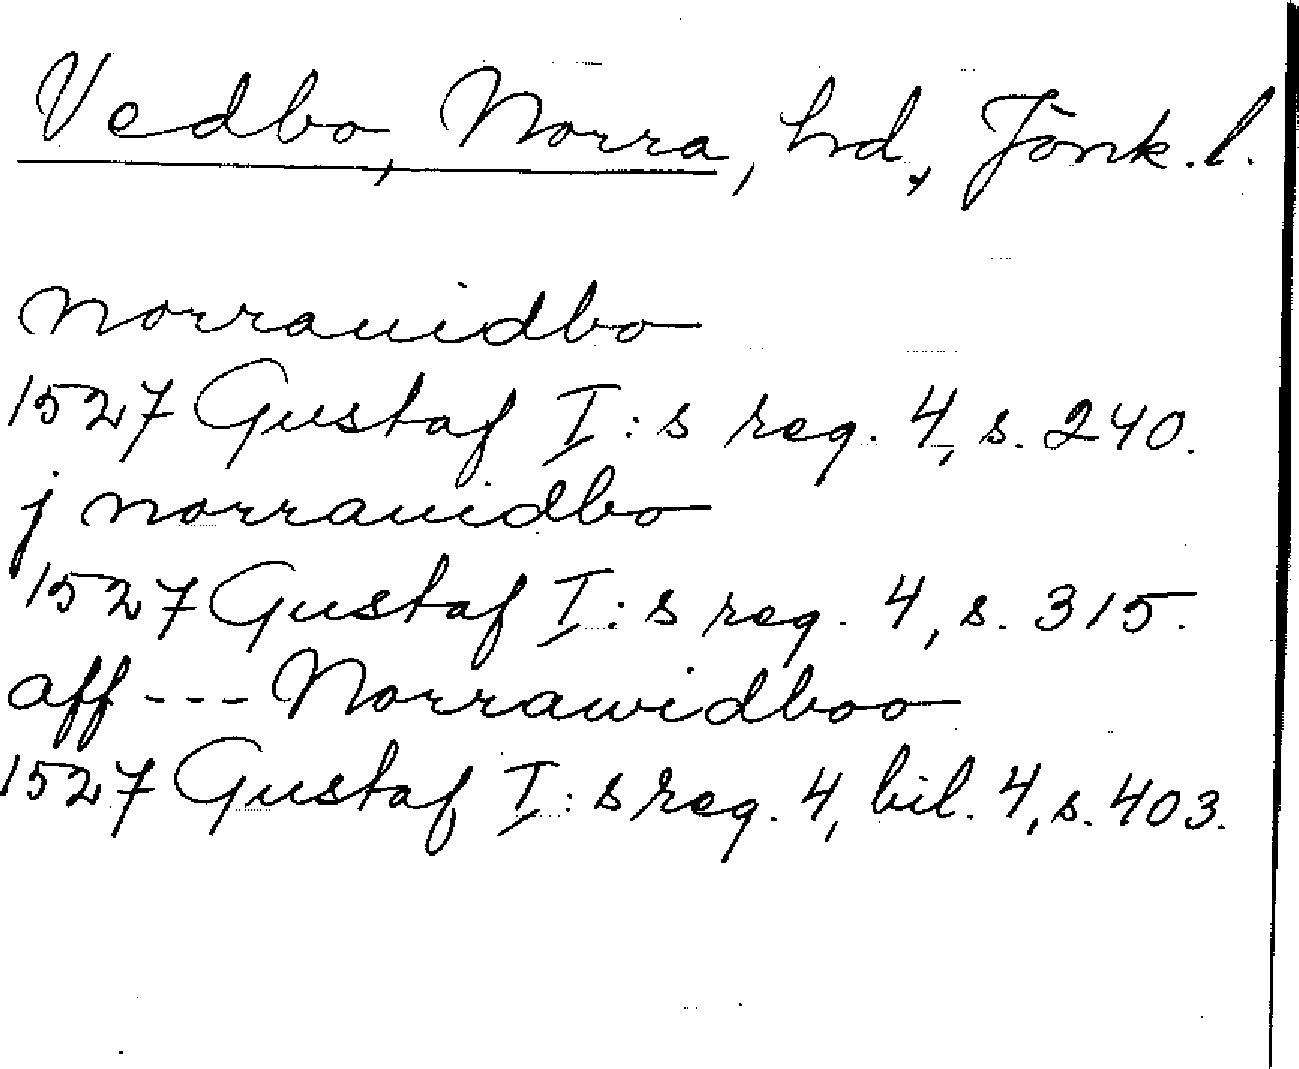 Vedbo, Norra, hd., Jönk. l.
norrauidbo
1527 Gustaf I:s reg. 4, s. 240.
j norrauidbo
1527 Gustaf I:s reg. 4, s. 315.
aff --- Norrawidboo
1527 Gustaf I:s reg. 4, bil. 4, s. 403.